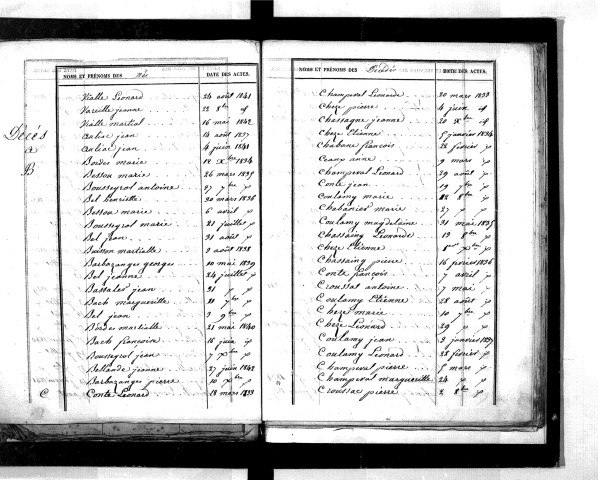 NOMS ET PRÉNOMS DES Nés DATE DES ACTES.
Vialle Léonard 24 août 1841
Vareille jeanne 22 8bre
Vialle martial 16 mai 1842
Décés
a
B
Auliac jean 14 août 1837
Auliac jean 4 juin 1841
Bordes marie 12 Xbre 1834
Besson marie 26 mars 1835
Bousseyrol antoine 27 7bre
Bel henriette 30 mars 1836
Besson marie 6 avril
Bousseyrol marie 21 juillet
Bel jean 31 août
Buisson martialle 9 août 1838
Barbazanges georges 10 mai 1839
Bel jeanne 24 juillet
Bastales jean 31
Bach marguerite 21 7bre
Bel jean 3 9bre
Bordes martialle 21 mai 1840
Bach françoise 16 juin
Bousseyrol jean 7 Xbre
Bellande jeanne 27 juin 1842
Barbazanges pierre 10 Xbre
C Conte Léonard 18 mars 1833
NOMS ET PRÉNOMS DES Décédés DATE DES ACTES.
Champeval Léonarde 30 mars 1833
Cheze pierre 4 juin
Chassagne jeanne 20 Xbre
Cheze Etienne 5 janvier 1834
Chabane françois 28 février
Ceaux anne 9 mars
Champeval Léonard 29 août
Conte jean 19 7bre
Coulamy marie 8bre
Chabanier marie 27
Coulamy magdelaine 31 mai 1835
Chassaing Léonarde 19 8bre
Cheze Etienne Xbre
Chassaing pierre 16 février 1836
Conte françois 7 avril
Croussat antoine 7 mai
Coulamy Etienne 28 août
Cheze marie 10 7bre
Cheze Léonard 29
Coulamy jean 2 janvier 1837
Coulamy Léonard 28 février
Champeval pierre 5 mars
Champeval marguerite 24
Croussac pierre 2 8bre